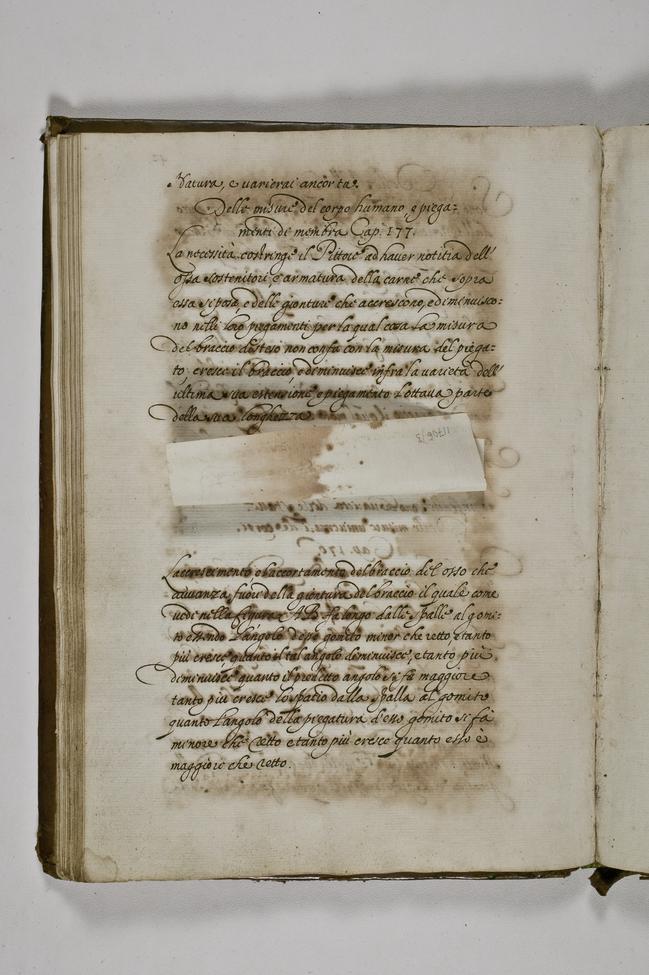 datura, e varierai ancor tu.
Delle misure del corpo humano, e piega-
menti de membra Cap. 177.
La necessità costringe il Pittore ad haver notitia dell'
ossa sostenitori e armatura della carne che sopra
essa si posa, e delle gionture che accrescono, e diminuisco-
no nelli loro piegamenti per la qual cosa La misura
del braccio disteso non confà con la misura del piega-
to cresce il braccio e diminuisce infra la varietà dell'
ultima sua estensione e piegamento L'ottava parte
della sua longhezza
L'accrescimento e l'accortamento del braccio del osso che
avvanza fuori della giontura del braccio il quale come
vedi nella figura AB fa longo dalle spalle al gomi-
to essendo L'angolo gomito minor che retto, e tanto
più cresce quanto il tal angolo deminuisce, e tanto più
deminuisce quanto il predetto angolo si fa maggiore
tanto più cresce lo spatio dalla spalla al gomito
quanto L'angolo della piegatura d'esso gomito si fà
minore che retto e tanto più cresce quanto esso è
maggiore che retto.